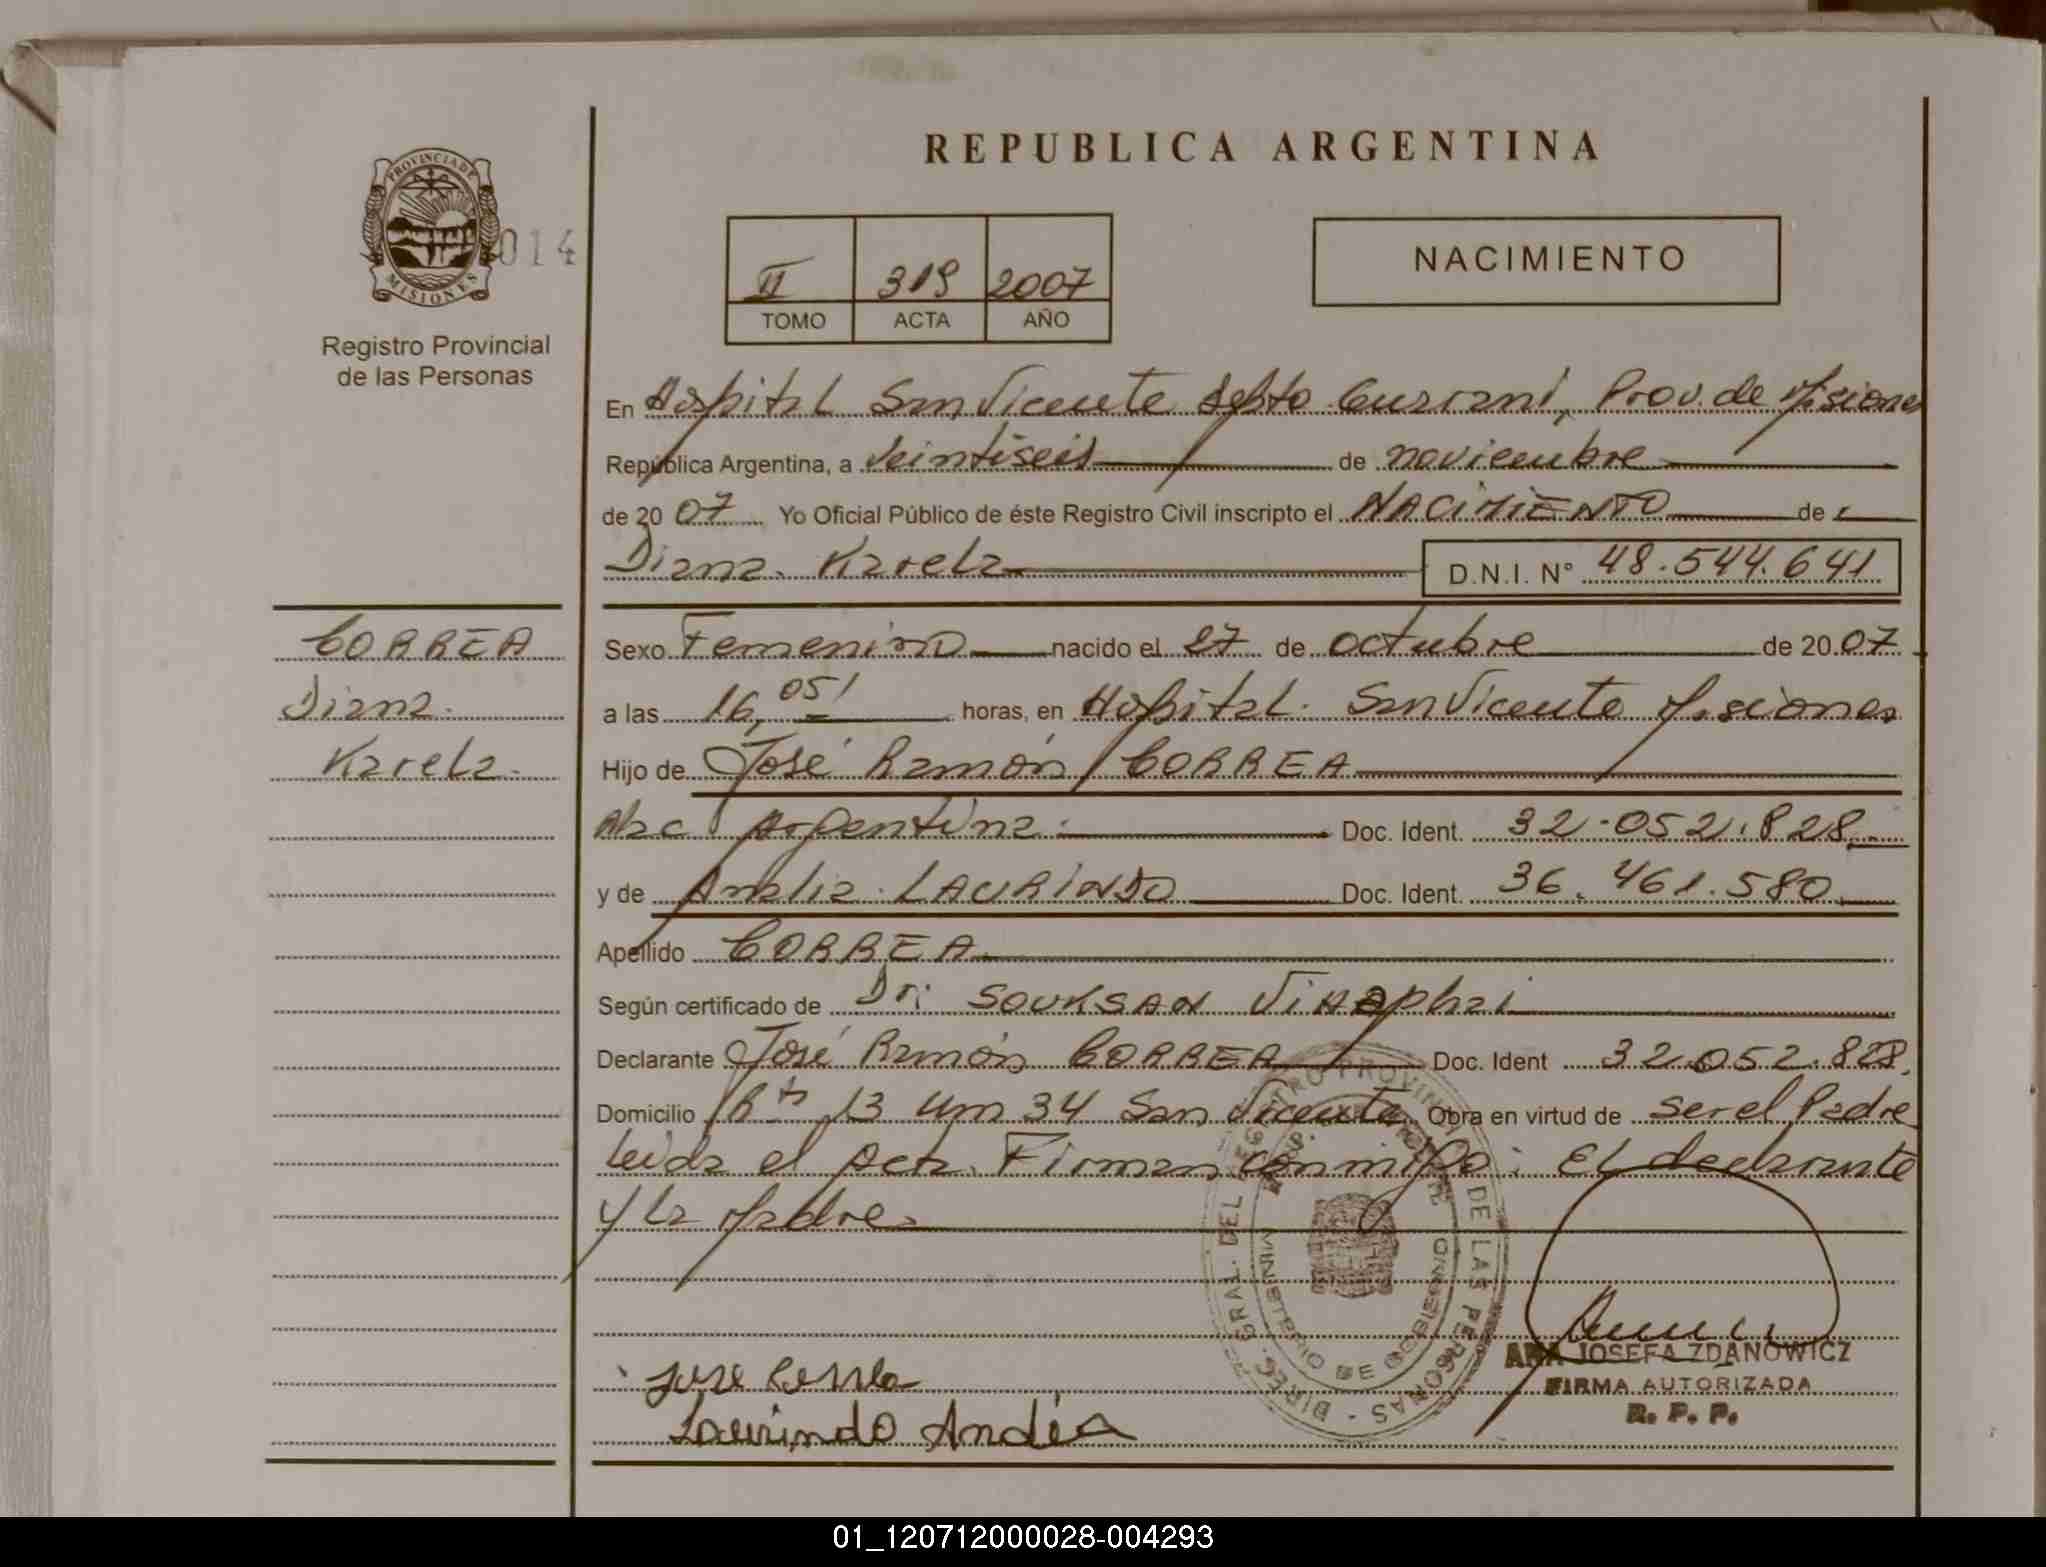 REPUBLICA ARGENTINA
PROVINCIA DE MISIONES
014
Registro Provincial
de las Personas
II 319 2007
TOMO ACTA AÑO
NACIMIENTO
En Hospital San Vicente Depto Guaraní, Prov. de Misiones
República Argentina, a Veintiseis de noviembre
de 2007 Yo Oficial Público de éste Registro Civil inscripto el NACIMIENTO de
Diana Karela D.N.I. N° 48.544.641
CORREA
Diana
Karela
Sexo Femenino nacido el 27 de octubre de 2007
a las 16,05' horas, en Hospital San Vicente Misiones
Hijo de José Ramón CORREA
Nac Argentina Doc. Ident. 32.052.828
y de Analia LAURINDO Doc. Ident. 36.461.580
Apellido CORREA
Según certificado de Dr: SOUKSAN
Declarante José Ramón CORREA Doc. Ident 32.052.828
Domicilio Rta 13 Km 34 San Vicente Obra en virtud de ser el Padre
Leida el Acta. Firman conmigo: El declarante
y la Madre
DIREC. GRAL. DEL REGISTRO PROVINCIAL DE LAS PERSONAS
MINISTERIO DE GOBIERNO
ANA JOSEFA ZDANOWICZ
FIRMA AUTORIZADA
R. P. P.
Jose Correa
Laurindo
01_120712000028-004293